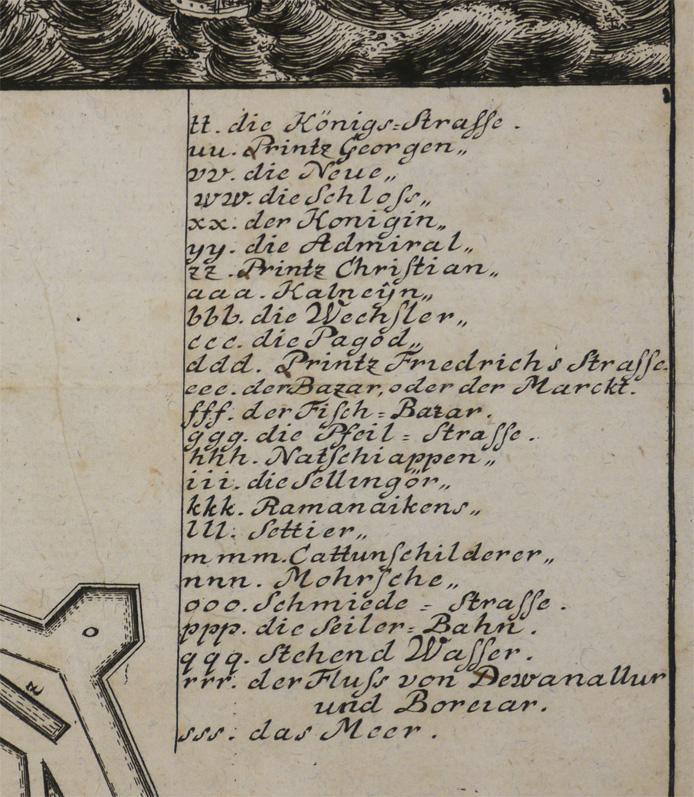 tt. die Königs=Strasse.
uu. Printz Georgen„
vv. die Neue„
ww. die Schloss„
xx. der Konigin„
yy. die Admiral„
zz. Printz Christian„
aaa. Kalneÿn„
bbb. die Wechsler„
ccc. die Pagod„
ddd. Printz Friedrichs Strasse.
eee. der Bazar, oder der Marckt.
fff. der Fisch=Bazar.
ggg. die Pfeil=Strasse.
hhh. Natschiappen„
iii. die Sellingör„
kkk. Ramanaikens„
lll. Settier„
mmm. Cattunschilderer„
nnn. Mohrsche„
ooo. Schmiede=Strasse.
ppp. die Seiler=Bahn.
qqq. Stehend Wasser.
rrr. der Fluss von Dewanallur
und Boreiar.
sss. das Meer.
z
o